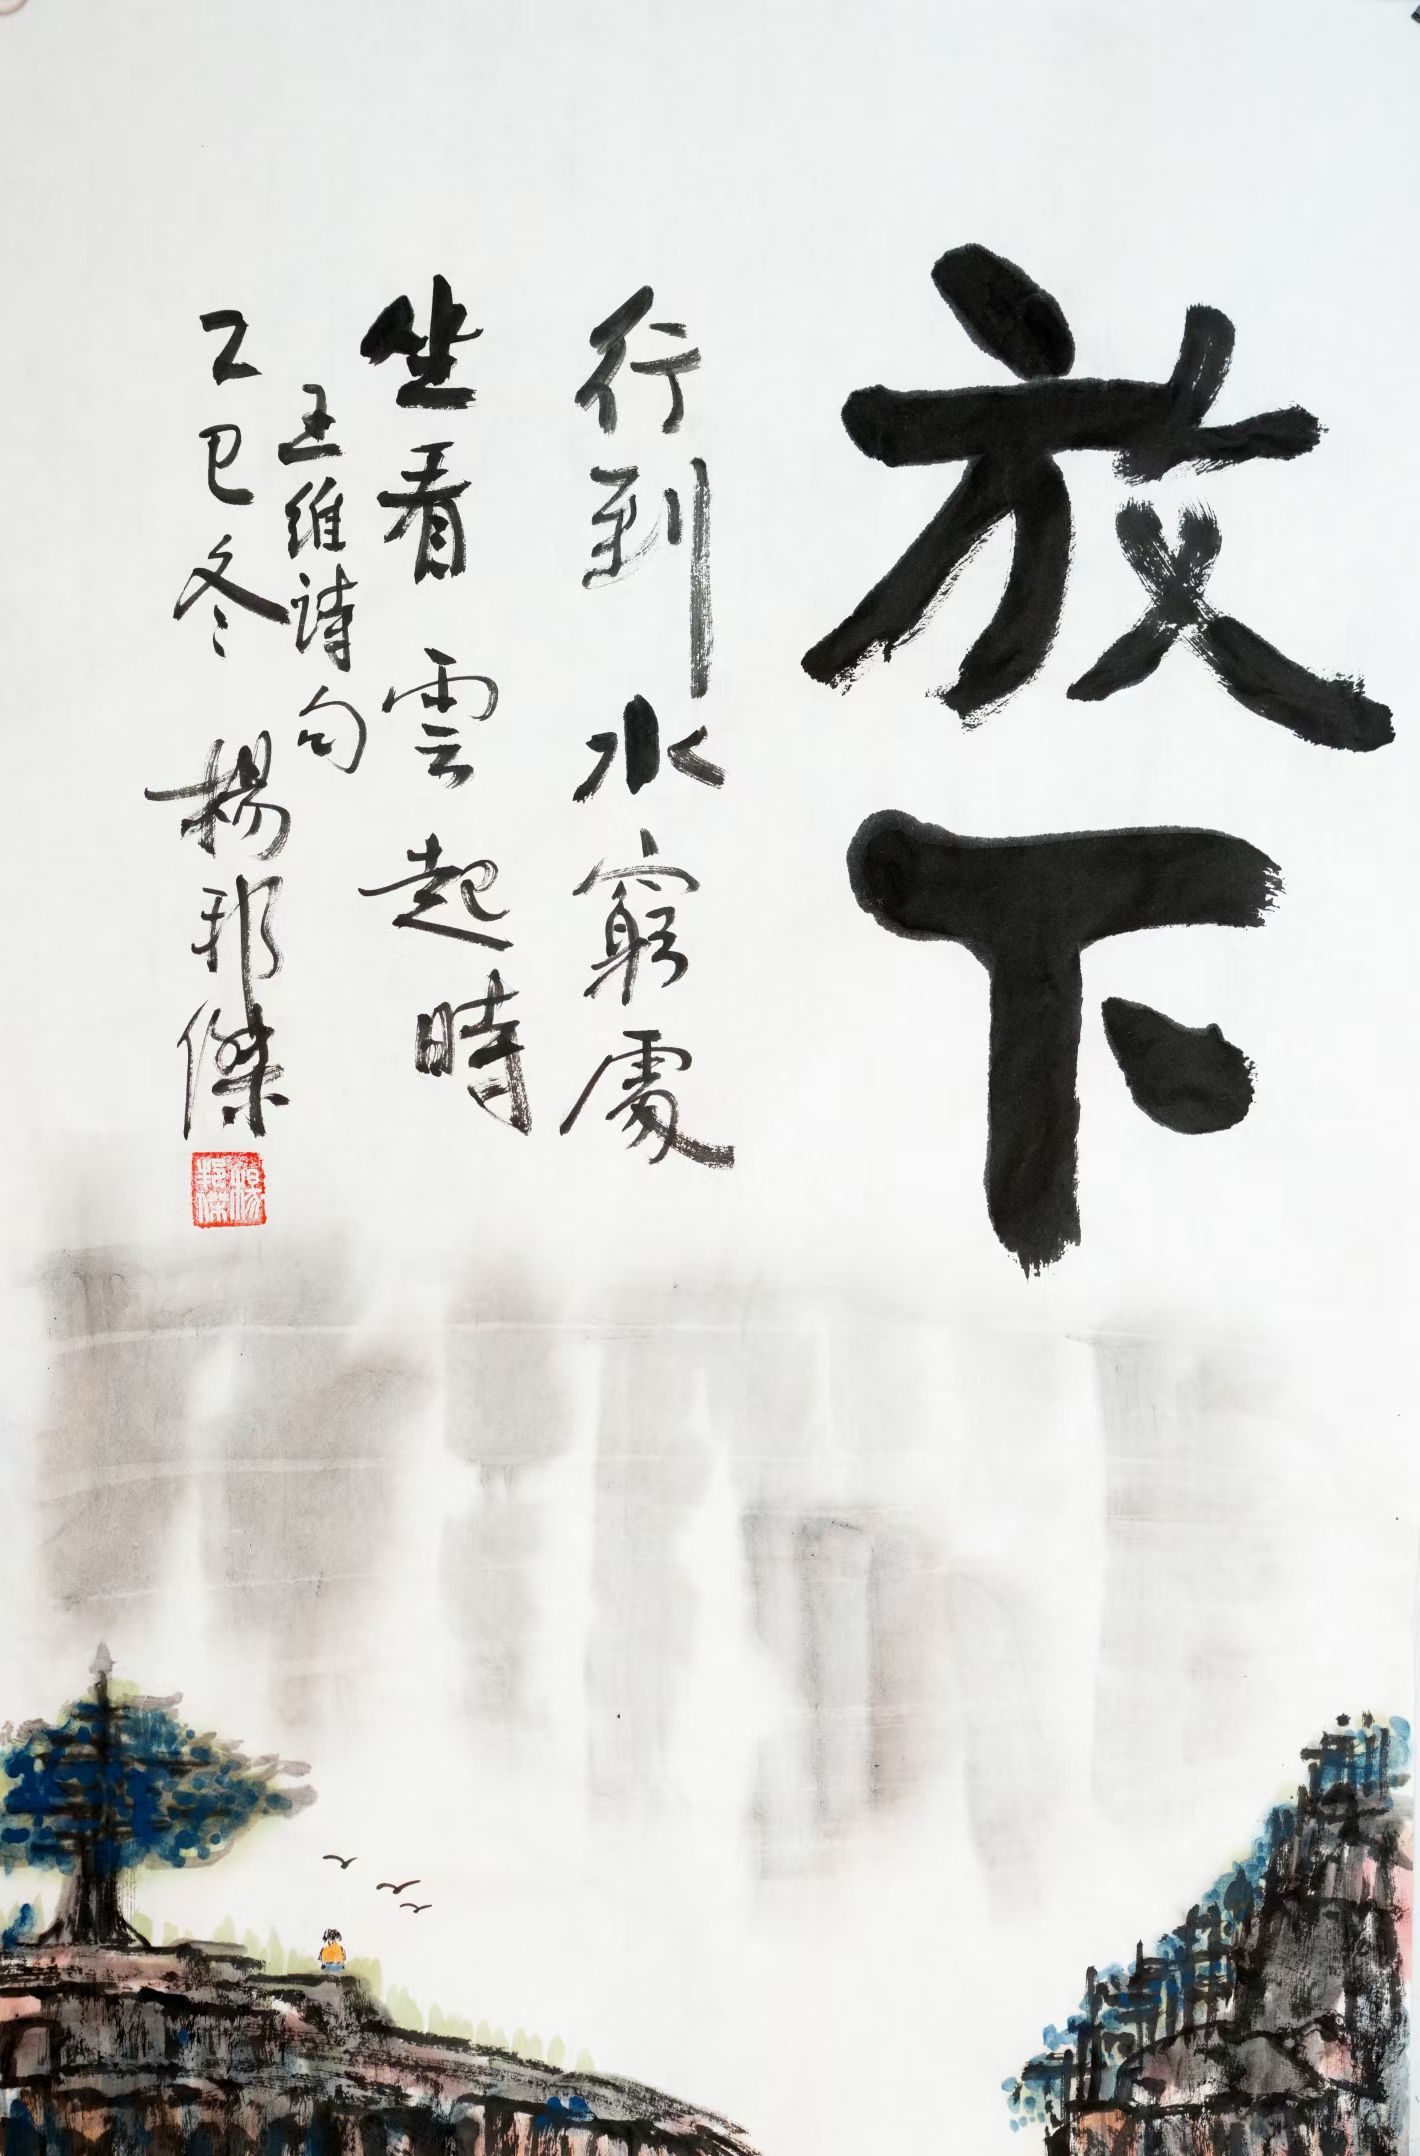 放下
行到水窮處
坐看雲起時
王維詩句
乙巳冬 楊邦傑
楊邦傑